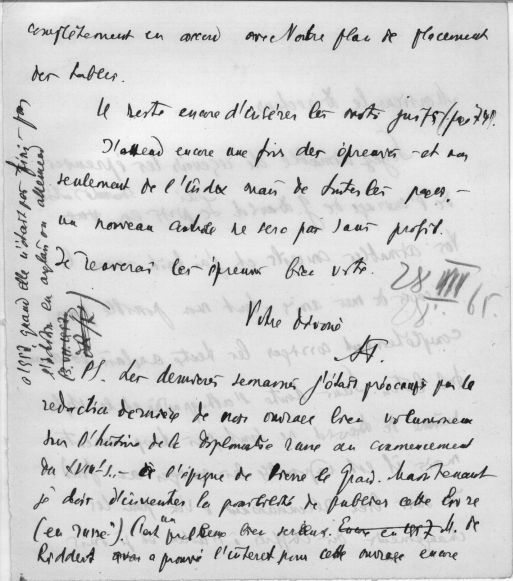 complètement en accord avec Notre plan de placement
des tables.
Il reste encore d'insérer les mots
J'attend encore une fois des épreuves - et non
seulement de l'index mais de toutes les pages -
un nouveau contrôle ne sera pas sans profit.
Je renverai les épreuves bien vite.
28 VIII 65.
Votre dévoué
PS. Les dernières semaines j'étais préocupé par la
rédaction dernière de mon ouvrage bien volumineux
sur l'histoire de la diplomatie russe au commencement
du XVIII s. - de l'époque de Pierre le Grand. Maintenant
je dois d'inventer la possibilité de publier cette livre
(en russe). C'est un problème bien sérieux. M. de
Ridder a prouvé l'interet pour cette ouvrage encore
o 1957 quand elle n'était pas finie - pas
en anglais ou allemand